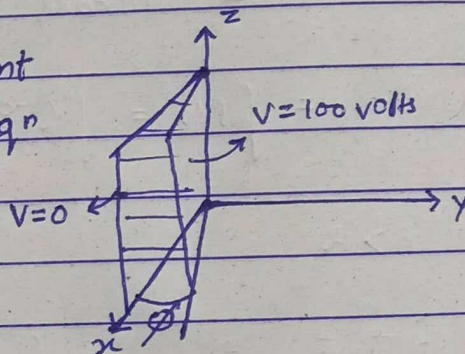 z
nt
qⁿ
V=100 volts
V=0
y
x
φ